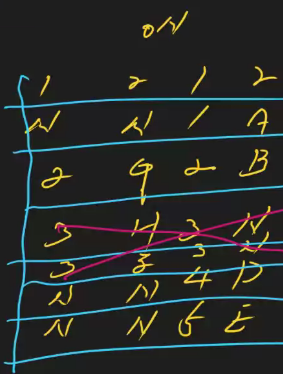 ON
1 2 1 2
N N 1 A
2 9 2 B
3 H 3 N
3 3
N N 4 D
N N 5 E